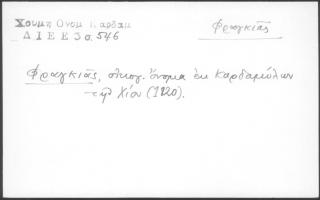 Χουμη Ονομ Καρδαμ
Δ Ι Ε Ε 3 σ. 546
Φραγκιᾶς
Φραγκιᾶς, οἰκογ. ὄνομα ἐκ Καρδαμύλων
τῆς Χίου (1220).